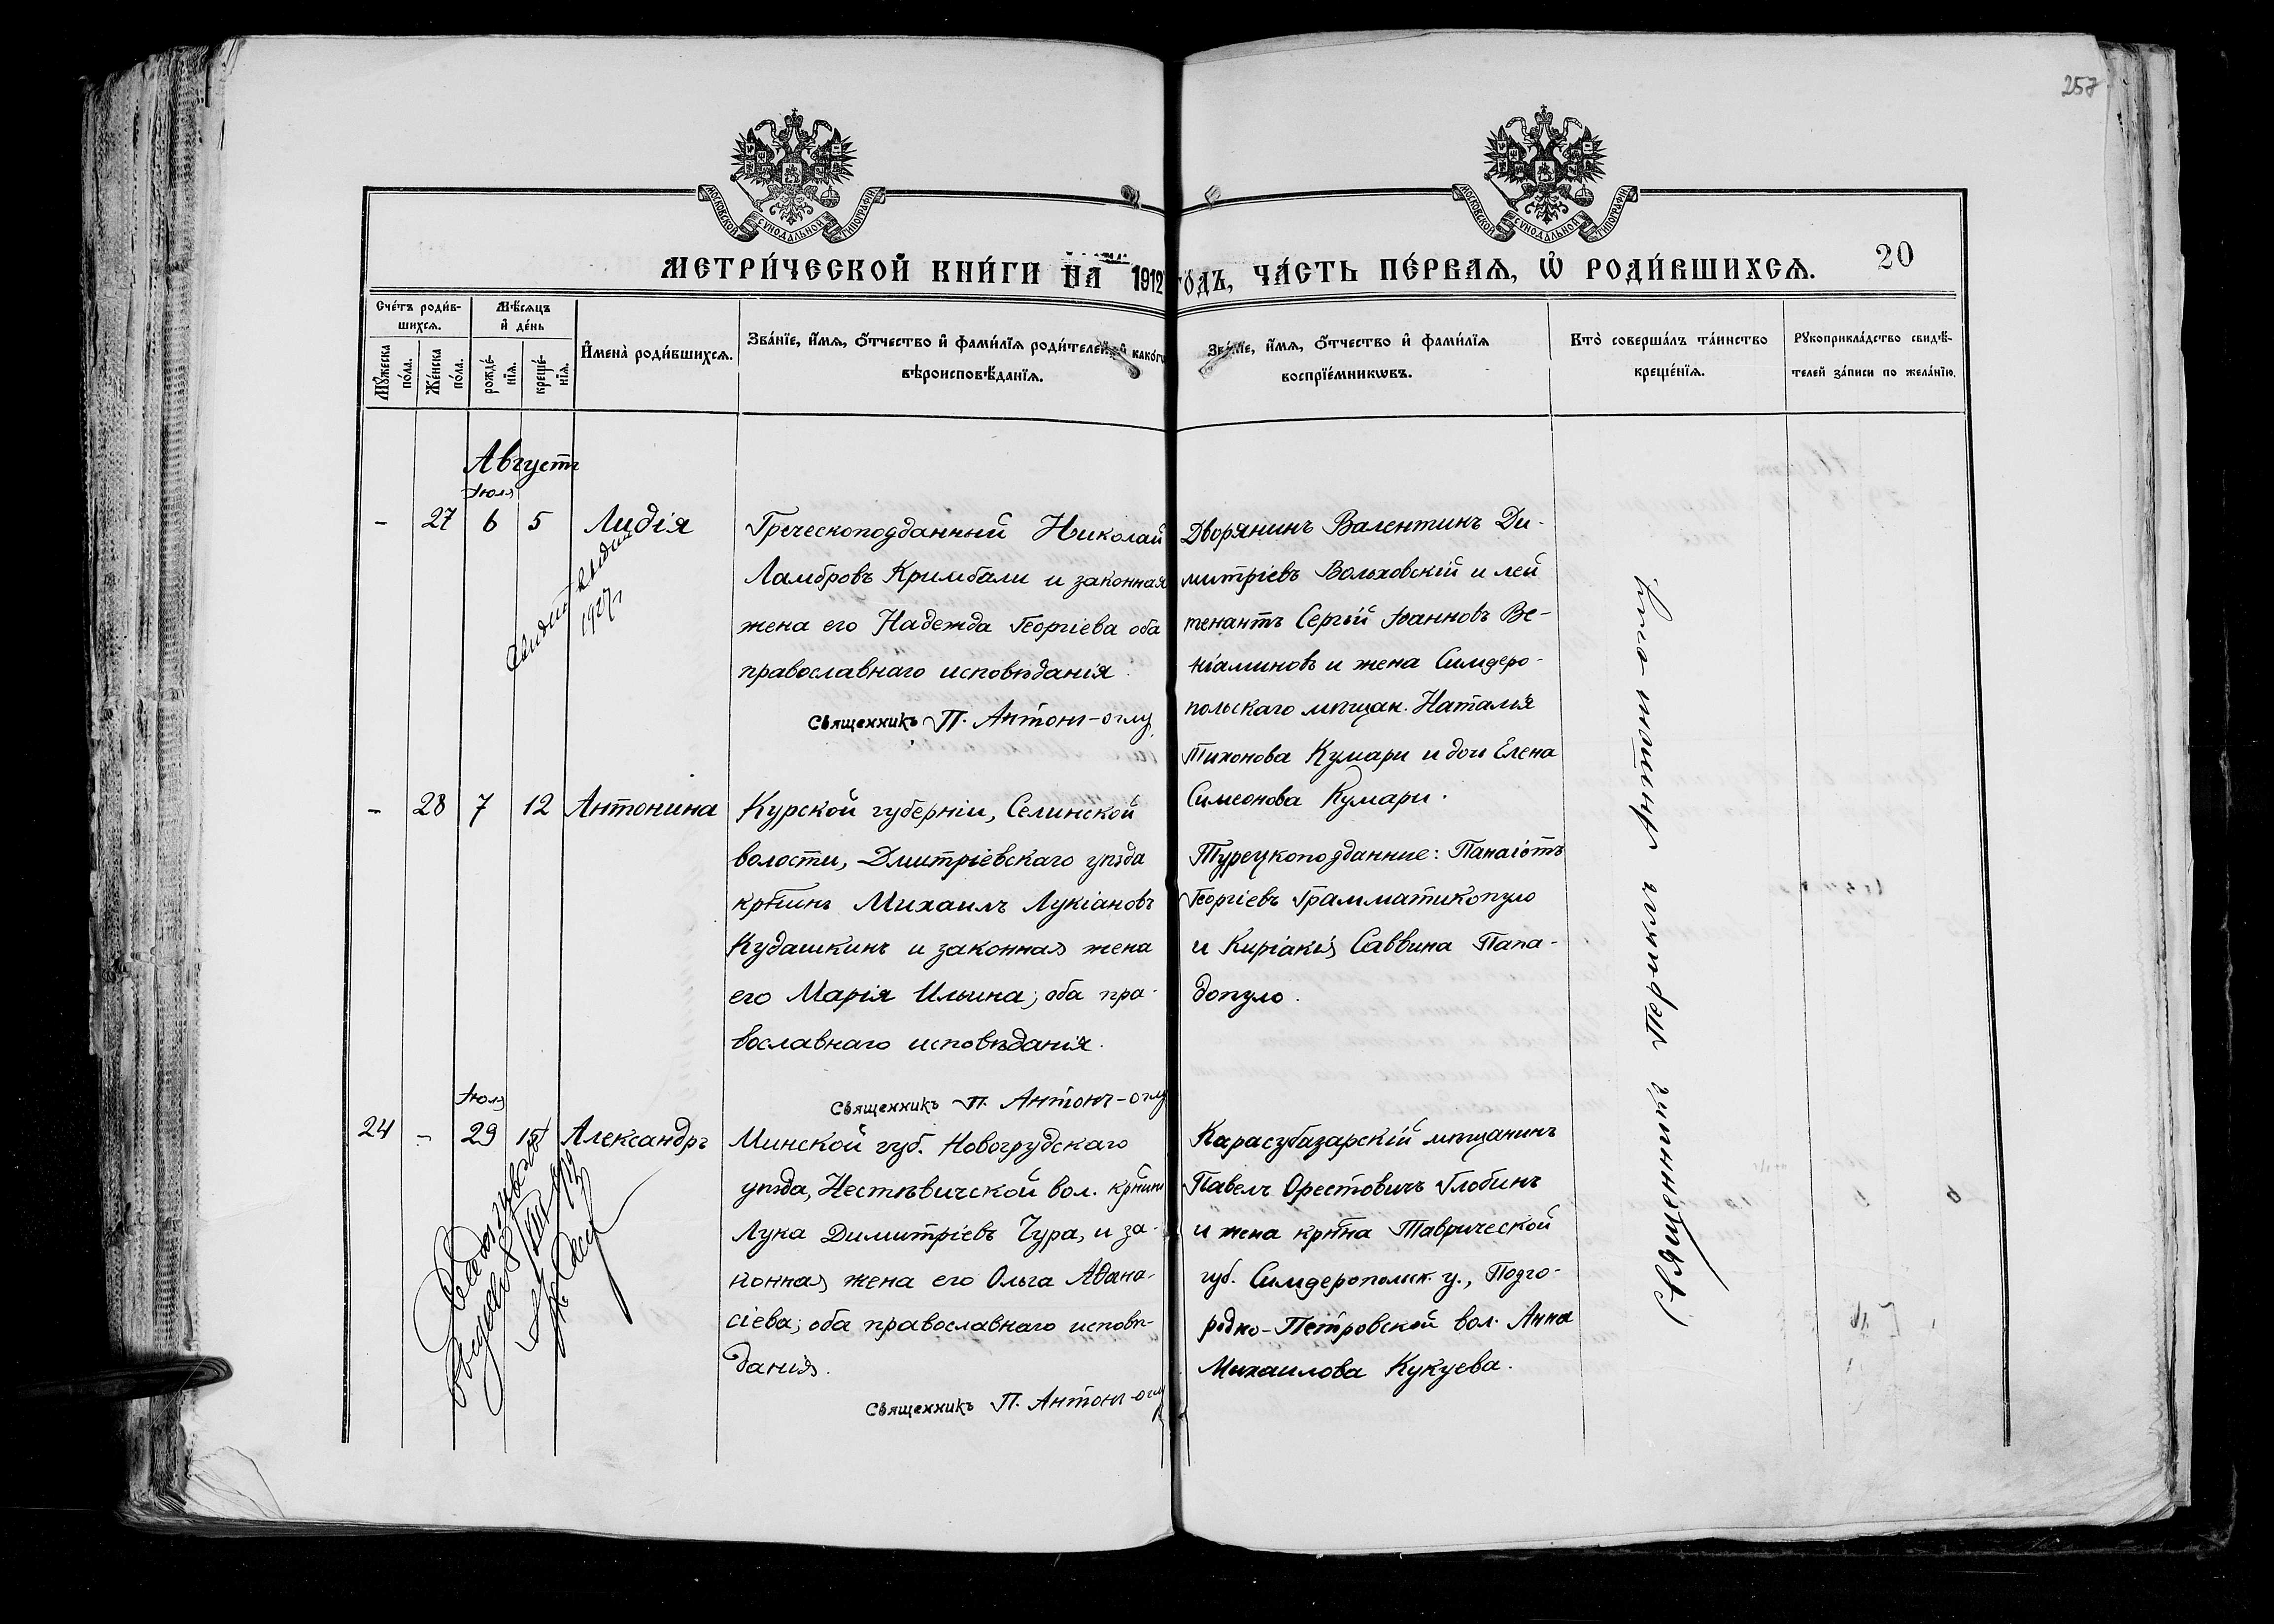 257
МОСКОВСКОЙ СУНОДАЛЬНОЙ ТИПОГРАФІИ
МОСКОВСКОЙ СУНОДАЛЬНОЙ ТИПОГРАФІИ
МЕТРИ́ЧЕСКОЙ КНИ́ГИ НА 1912 ГО́ДЪ, ЧА́СТЬ ПЕ́РВАЯ, Ѡ҆ РОДИ́ВШИХСЯ. 20
Сче́тъ роди́в-
шихся.
Мꙋ́жеска по́ла.
Же́нска по́ла.
Мѣ́сяцъ
и҆ де́нь
рожде́-
нїя.
креще́-
нїя.
И҆мена̀ роди́вшихся.
Зва́нїе, и҆́мя, ѻ҆́тчество и҆ фами́лїя роди́телей, и҆ како́гѡ
вѣроисповѣ́данїя.
Зва́нїе, и҆́мя, ѻ҆́тчество и҆ фами́лїя
воспрїе́мникѡвъ.
Кто̀ соверша́лъ та́инство
креще́нїя.
Рꙋкоприкла́дство свидѣ́-
телей за́писи по жела́нїю.
Августъ
Іюля
- 27 6 5 Лидія
1927г
Греческоподданный Николай
Ламбровъ Кримбали и законная
жена его Надежда Георгіева оба
православнаго исповѣданія.
Священникъ П. Антонъ-оглу.
Дворянинъ Валентинъ Ди-
митріевъ Вольховскій и лей
тенантъ Сергѣй Іоанновъ Ве-
ніаминовъ и жена Симферо-
польскаго мѣщан. Наталія
Тихонова Кумари и дочь Елена
Симеонова Кумари.
- 28 7 12 Антонина
Курской губерніи, Селинской
волости, Дмитріевскаго уѣзда
крнинъ Михаилъ Лукіановъ
Кудашкинъ и законная жена
его Марія Ильина; оба пра-
вославнаго исповѣданія.
Священникъ П. Антонъ-оглу
Турецкоподданные: Панаіотъ
Георгіевъ Грамматикопуло
и Киріакія Саввина Папа-
допуло.
Іюля
24 - 29 15 Александръ
Минской губ. Новогрудскаго
уѣзда, Нестѣвичской вол. крнинъ
Лука Димитріевъ Чура, и за-
конная жена его Ольга Аѳана-
сіева; оба православнаго исповѣ-
данія.
Священникъ П. Антонъ-оглу
Карасубазарскій мѣщанинъ
Павелъ Орестовичъ Глобинъ
и жена крнна Таврической
губ. Симферопольск. у., Подго-
родно-Петровской вол. Анна
Михаилова Кукуева.
Священникъ Периклъ Антонъ-оглу.